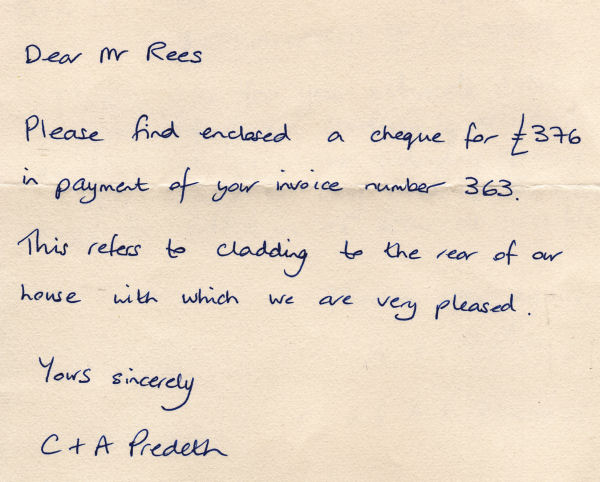 Dear Mr Rees
Please find enclosed a cheque for £376
in payment of your invoice number 363.
This refers to cladding to the rear of our
house with which we are very pleased.
Yours sincerely
C + A Predeth